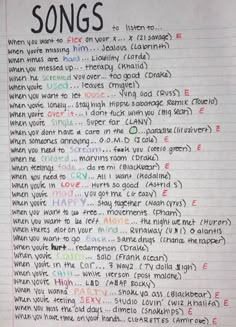 SONGS to listen to...
When you want to flex on your x... X (21 savage) E
when you're missing him... Jealous (Labrinth)
when times are hard... Liability (Lorde)
when you messed up... therapy (Khalid)
when he screwed you over... too good (Drake)
when you're used... leaves (Miguel)
When you want to let loose... Yung God (RUSS) E
when you're over it... i don't fuck with you (big sean) E
when you're single... Super far (LANY)
when you dont have a care in the
when someones annoying... O.M.D (J Cole) E
when you need to scream... feel you (cee lo green) E
when he cheated... marvins room (Drake) E
when feelings fade... do re mi (Blackbear) E
When you need to CRY... All I want (Kodaline)
when you're in LOVE... Hurts so good (Astrid S)
when you're mad... you got me (G eazy) E
when you're HAPPY... Stay together (Noah Cyrus) E
When you want to be free... movements (Pham) E
When you want to be left Alone... the night we met (Huron)
When theres alot on your mind... Runaway (U.N.I) & atlantis
When you want to go back... same drugs (chance the rapper)
when you're hurt... redemption (Drake) E
when you're calm... solo (Frank Ocean) E
when you're in the car... 3 wayz (Ty dolla $ign) E
when you're CHILL... white iverson (post malone) E
when you're High... LSD (A$AP Rocky) E
When you wanna PARTY... shake ya ass (Blackbear) E
when you're feeling SEXY... Studio Lovin' (wiz khalifa) E
when you miss the old days... dimelo (Snakehips) E
when you have time on your hands... CIGARETTES (Amir Obe) E